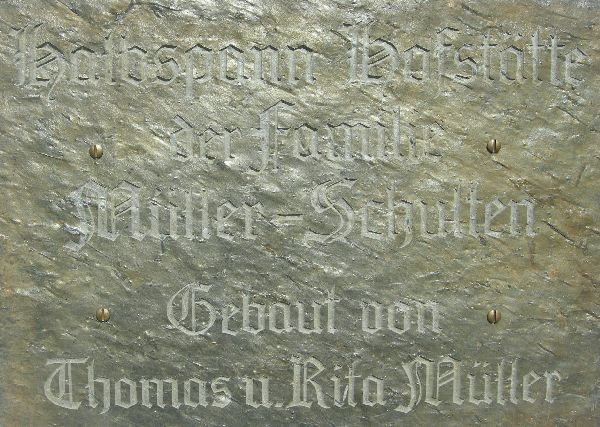 Halbspann Hofstätte
der Familie
Müller-Schulten
Gebaut von
Thomas u. Rita Müller